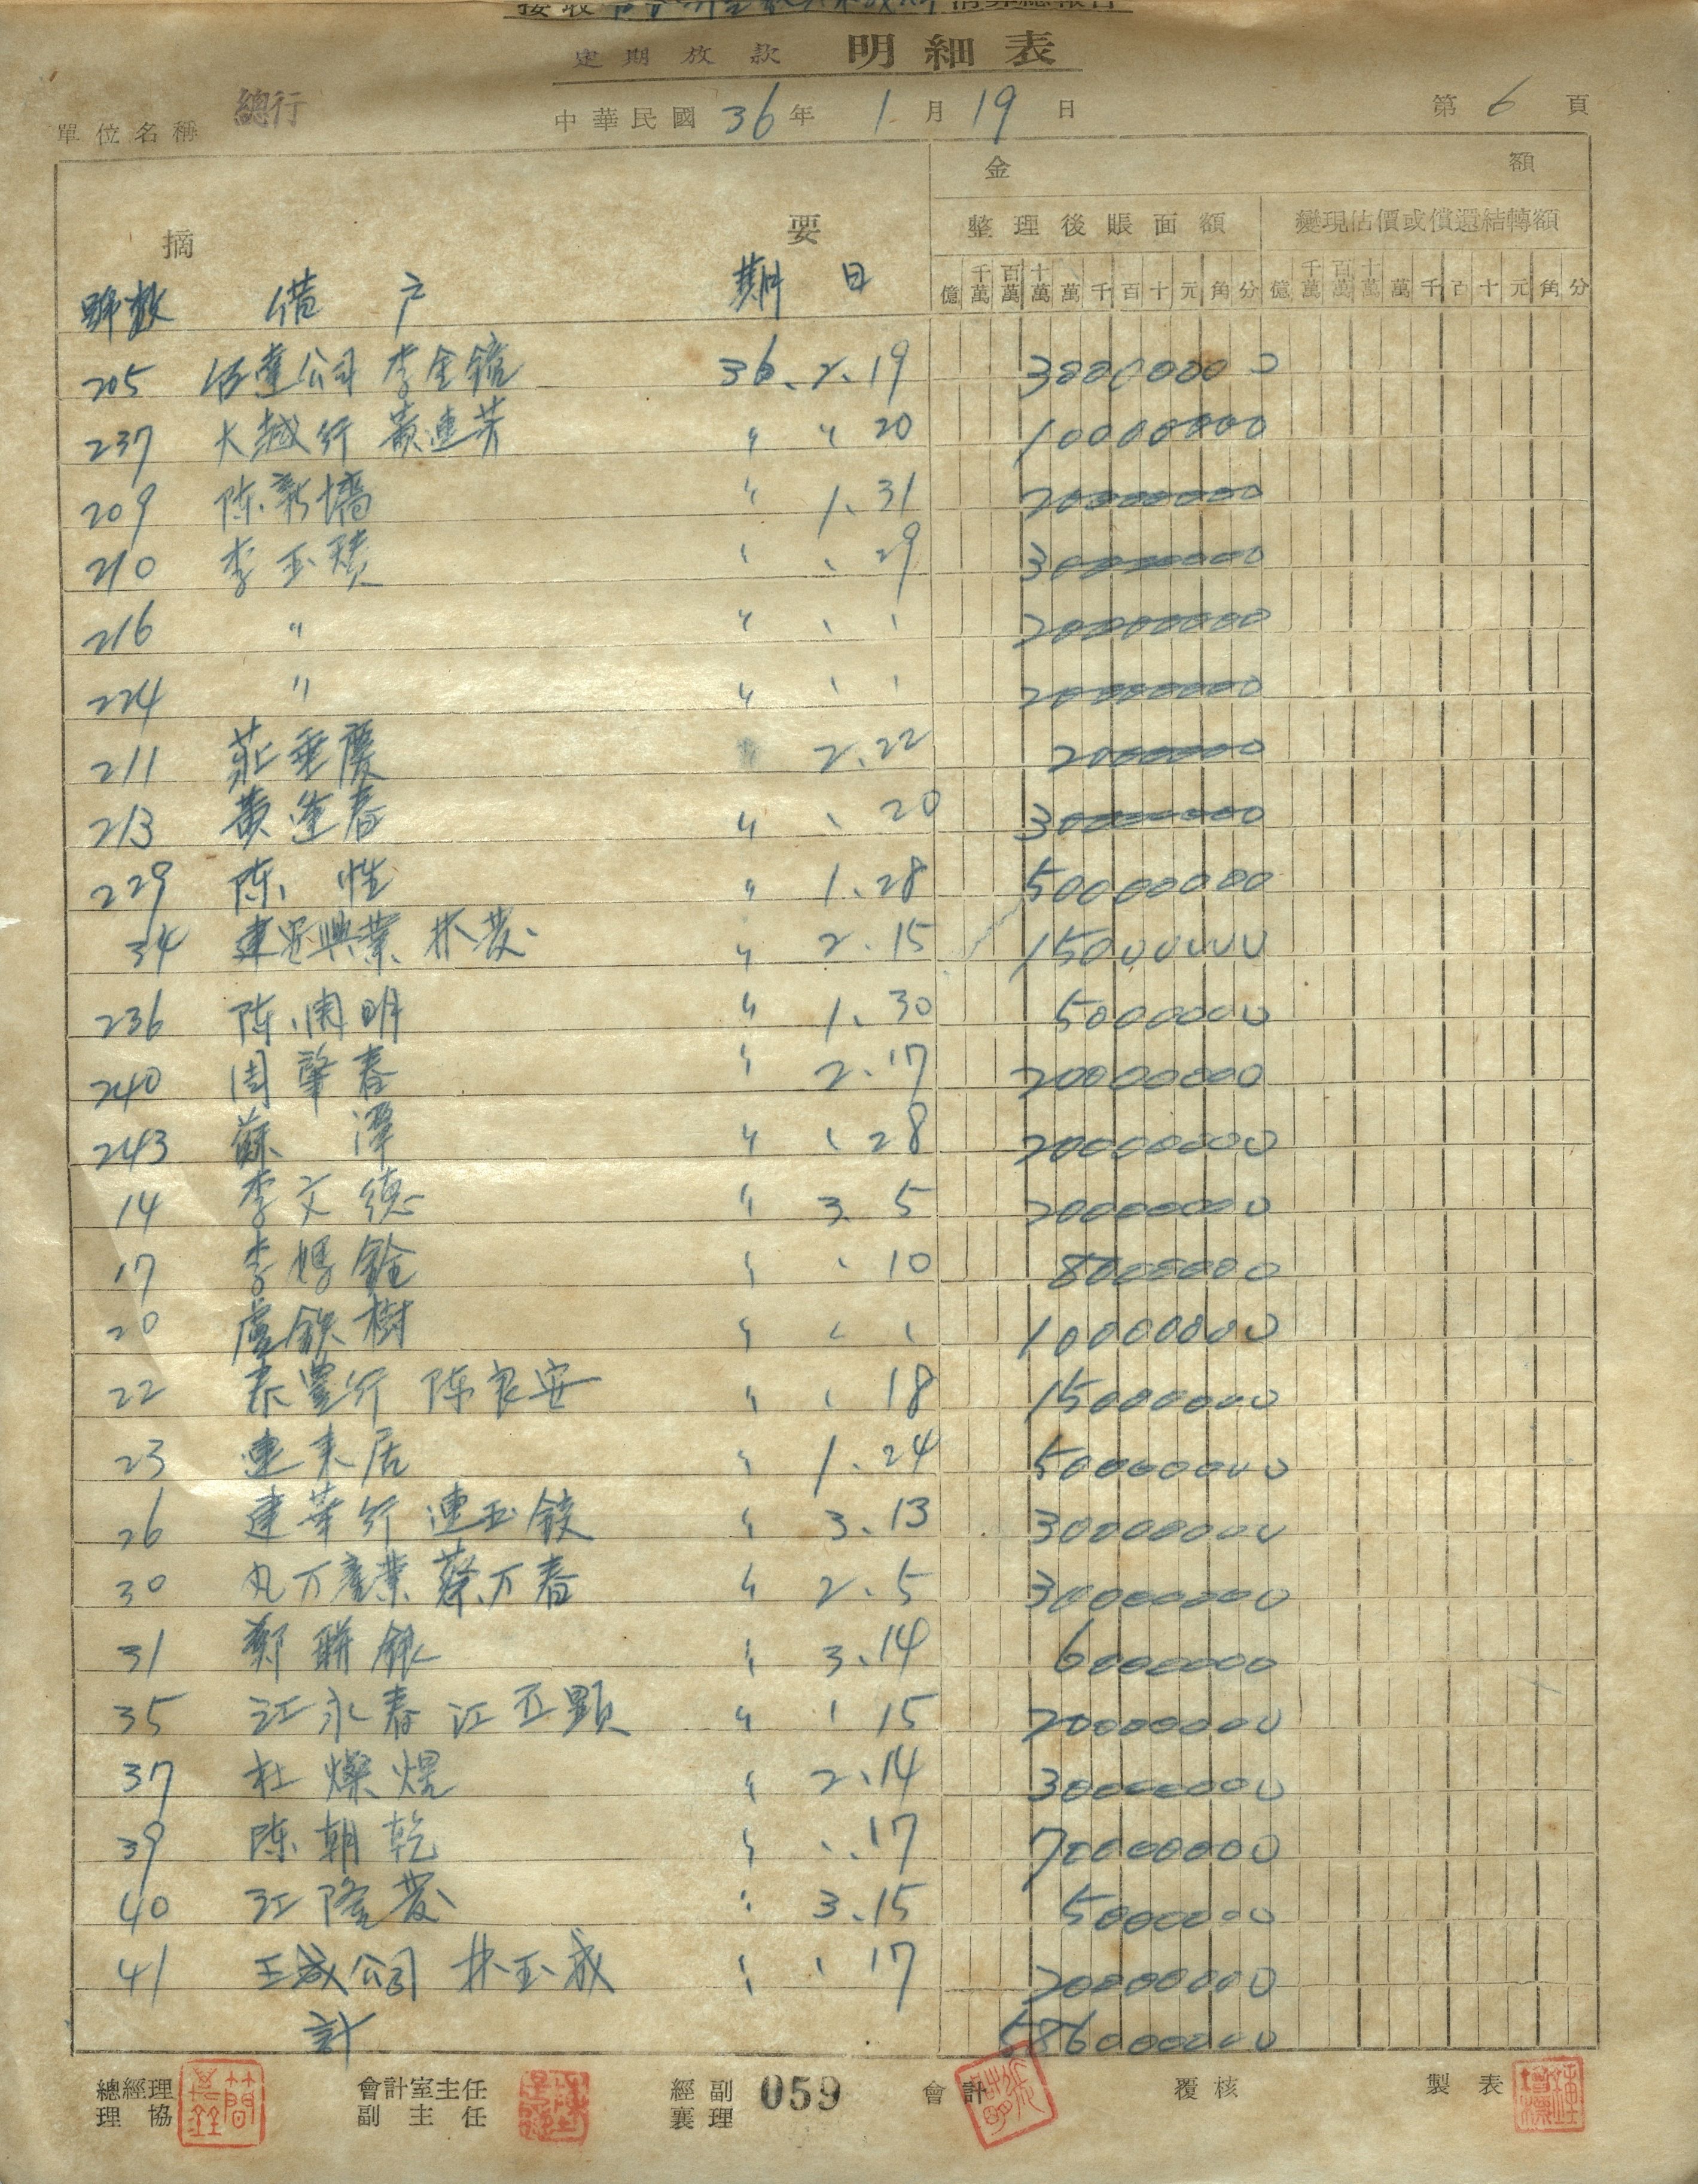 清算總報告
定期放款 明細表
單位名稱 總行 中華民國 36 年 1 月 19 日 第 6 頁
金額
摘要 整理後賬面額 變現估價或償還結轉額
號數 借户 期日 億 千萬 百萬 十萬 萬 千 百 十 元 角 分 億 千萬 百萬 十萬 萬 千 百 十 元 角 分
205 公司 李金 36、2、19 30000000
237 大越行 黃連芳 〃 〃 20 10000000
209 陈新 〃 1、31 20000000
210 李玉 〃 、 29 30000000
216 〃 〃 、 、 20000000
224 〃 〃 、 、 20000000
211 莊垂慶 2、22 2000000
213 黃逢春 〃 、 20 30000000
229 陈 性 〃 1、28 50000000
34 建 興業 林發 〃 2、15 15000000
236 陈 明 〃 1、30 5000000
240 周肇春 〃 2、17 20000000
243 蘇 潭 〃 、 28 20000000
14 李文德 〃 3 5 20000000
17 李媽銓 〃 、 10 8000000
20 盧欽樹 〃 、 、 10000000
22 泰豐行 陈良安 〃 、 18 15000000
23 連來居 〃 1、24 50000000
26 建華行 連玉 〃 3、13 30000000
30 丸万產業 蔡万春 〃 2、5 30000000
31 鄭聯銀 〃 3、14 6000000
35 江永春 江丕顯 〃 、 15 20000000
37 杜燦煜 〃 2、14 30000000
39 陈朝乾 〃 、 17 70000000
40 江隆發 〃 3、15 5000000
41 玉成公司 林玉成 〃 、 17 20000000
計 586000000
總經理 會計室主任 經副 059 會計 覆核 製表
理協 副主任 襄理